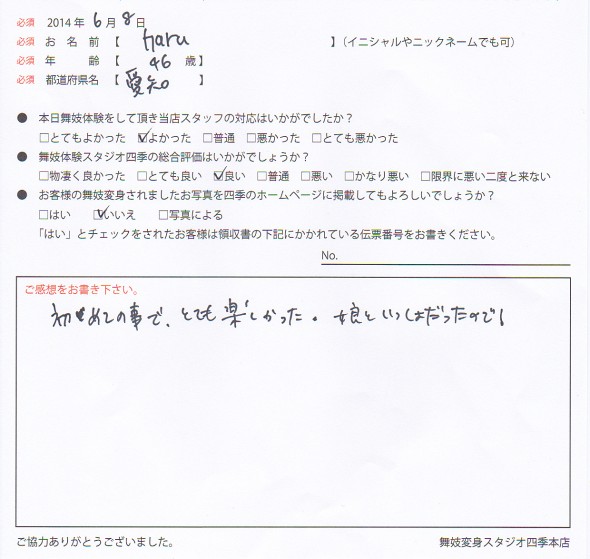 必須 2014年 6月 8日
必須 お名前【 Haru 】(イニシャルやニックネームでも可)
必須 年齢【 46 歳】
必須 都道府県名【 愛知 】
● 本日舞妓体験をして頂き当店スタッフの対応はいかがでしたか？
□とてもよかった ☑よかった □普通 □悪かった □とても悪かった
● 舞妓体験スタジオ四季の総合評価はいかがでしょうか？
□物凄く良かった □とても良い ☑良い □普通 □悪い □かなり悪い □限界に悪い二度と来ない
● お客様の舞妓変身されましたお写真を四季のホームページに掲載してもよろしいでしょうか？
□はい ☑いいえ □写真による
「はい」とチェックをされたお客様は領収書の下記にかかれている伝票番号をお書きください。
No.
ご感想をお書き下さい。
初めての事で、とても楽しかった。娘といっしょだったので！
ご協力ありがとうございました。 舞妓変身スタジオ四季本店